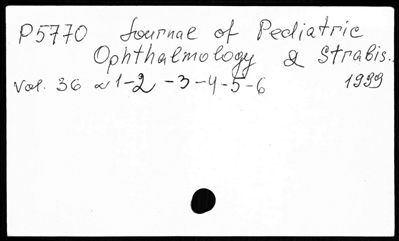 P5770 Journal of Pediatric
Ophthalmology & Strabis..
Vol. 36 N 1-2-3-4-5-6 1999